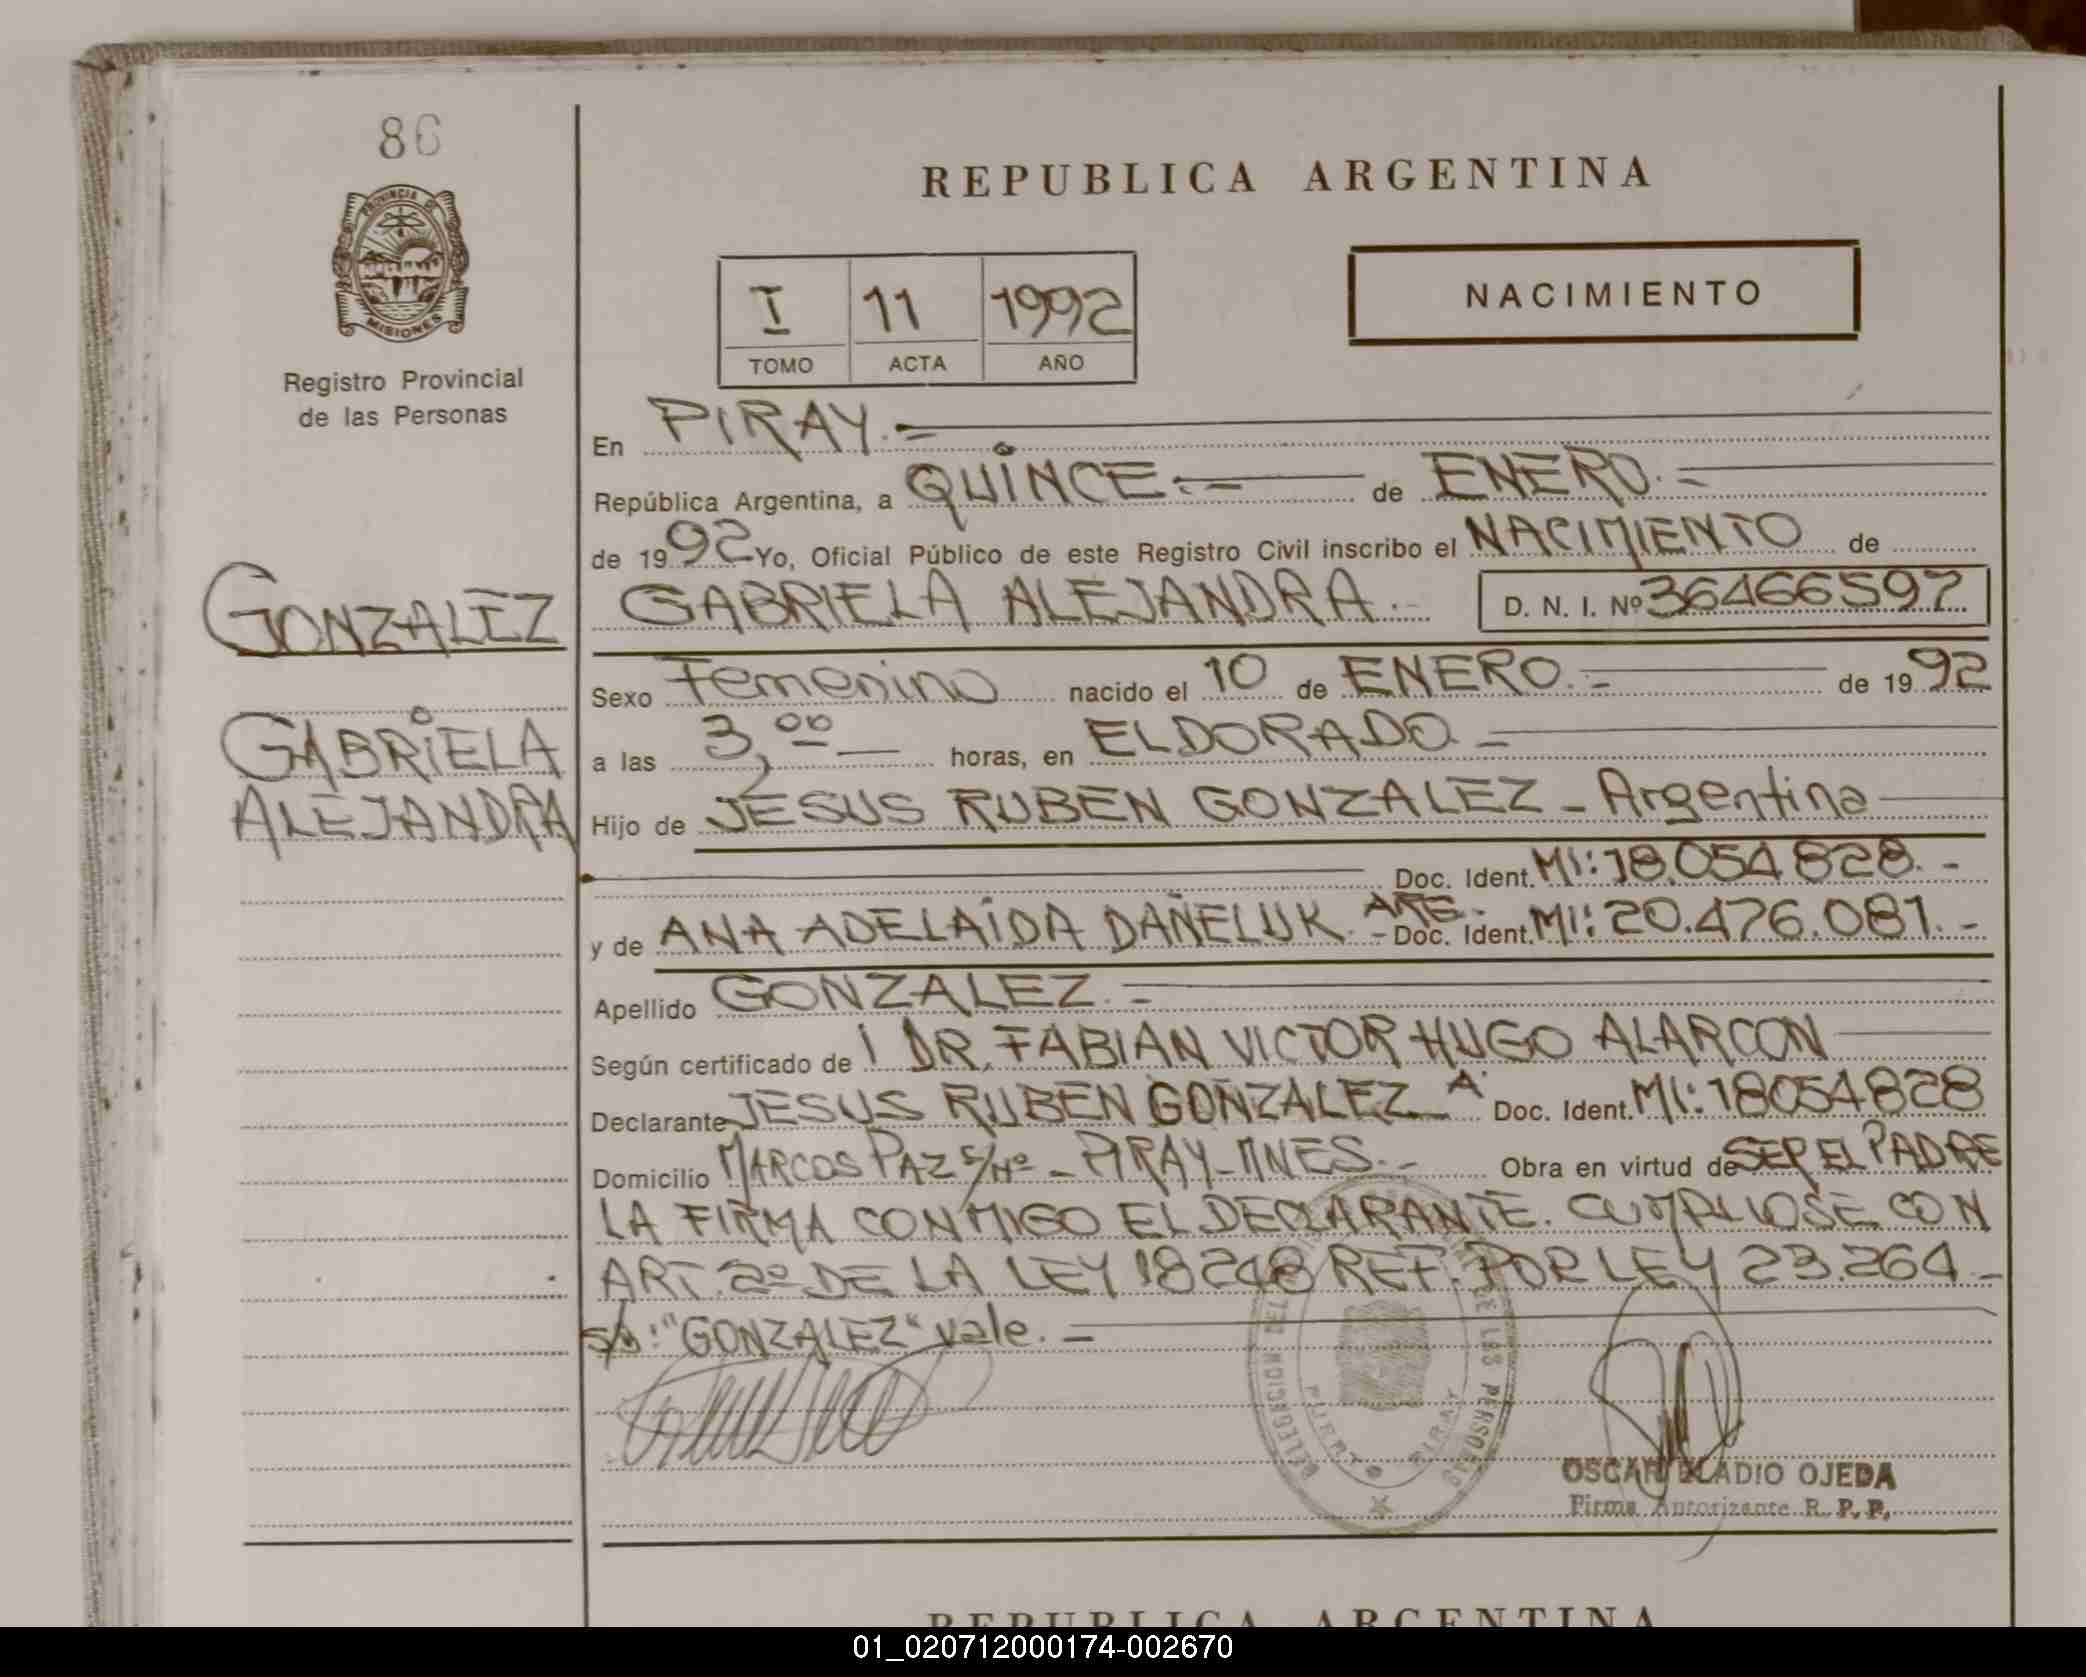 86
PROVINCIA DE
MISIONES
Registro Provincial
de las Personas
REPUBLICA ARGENTINA
I 11 1992
TOMO ACTA AÑO
NACIMIENTO
En PIRAY.-
República Argentina, a QUINCE.- de ENERO.-
de 1992 Yo, Oficial Público de este Registro Civil inscribo el NACIMIENTO de
GONZALEZ
GABRIELA ALEJANDRA.- D. N. I. Nº 36466597
Sexo Femenino nacido el 10 de ENERO.- de 1992
GABRIELA
a las 3,00 horas, en ELDORADO.-
ALEJANDRA
Hijo de JESUS RUBEN GONZALEZ - Argentina
Doc. Ident. MI: 18.054 828.-
y de ANA ADELAIDA DAÑELUK. ARG.- Doc. Ident. MI: 20.476.081.-
Apellido GONZALEZ.-
Según certificado de l DR. FABIAN VICTOR HUGO ALARCON
Declarante JESUS RUBEN GONZALEZ A Doc. Ident. MI: 18054828
Domicilio MARCOS PAZ S/Nº - PIRAY - MNES.- Obra en virtud de SER EL PADRE
LA FIRMA CONMIGO EL DECLARANTE. CUMPLIOSE CON
ART. 2º DE LA LEY 18248 REF. POR LEY 23.264 -
S/b: "GONZALEZ" vale.-
DELEGACION DEL DE LAS PERSONAS
PUERTO PIRAY
OSCAR ELADIO OJEDA
Firma Autorizante R. P. P.
REPUBLICA ARGENTINA
01_020712000174-002670